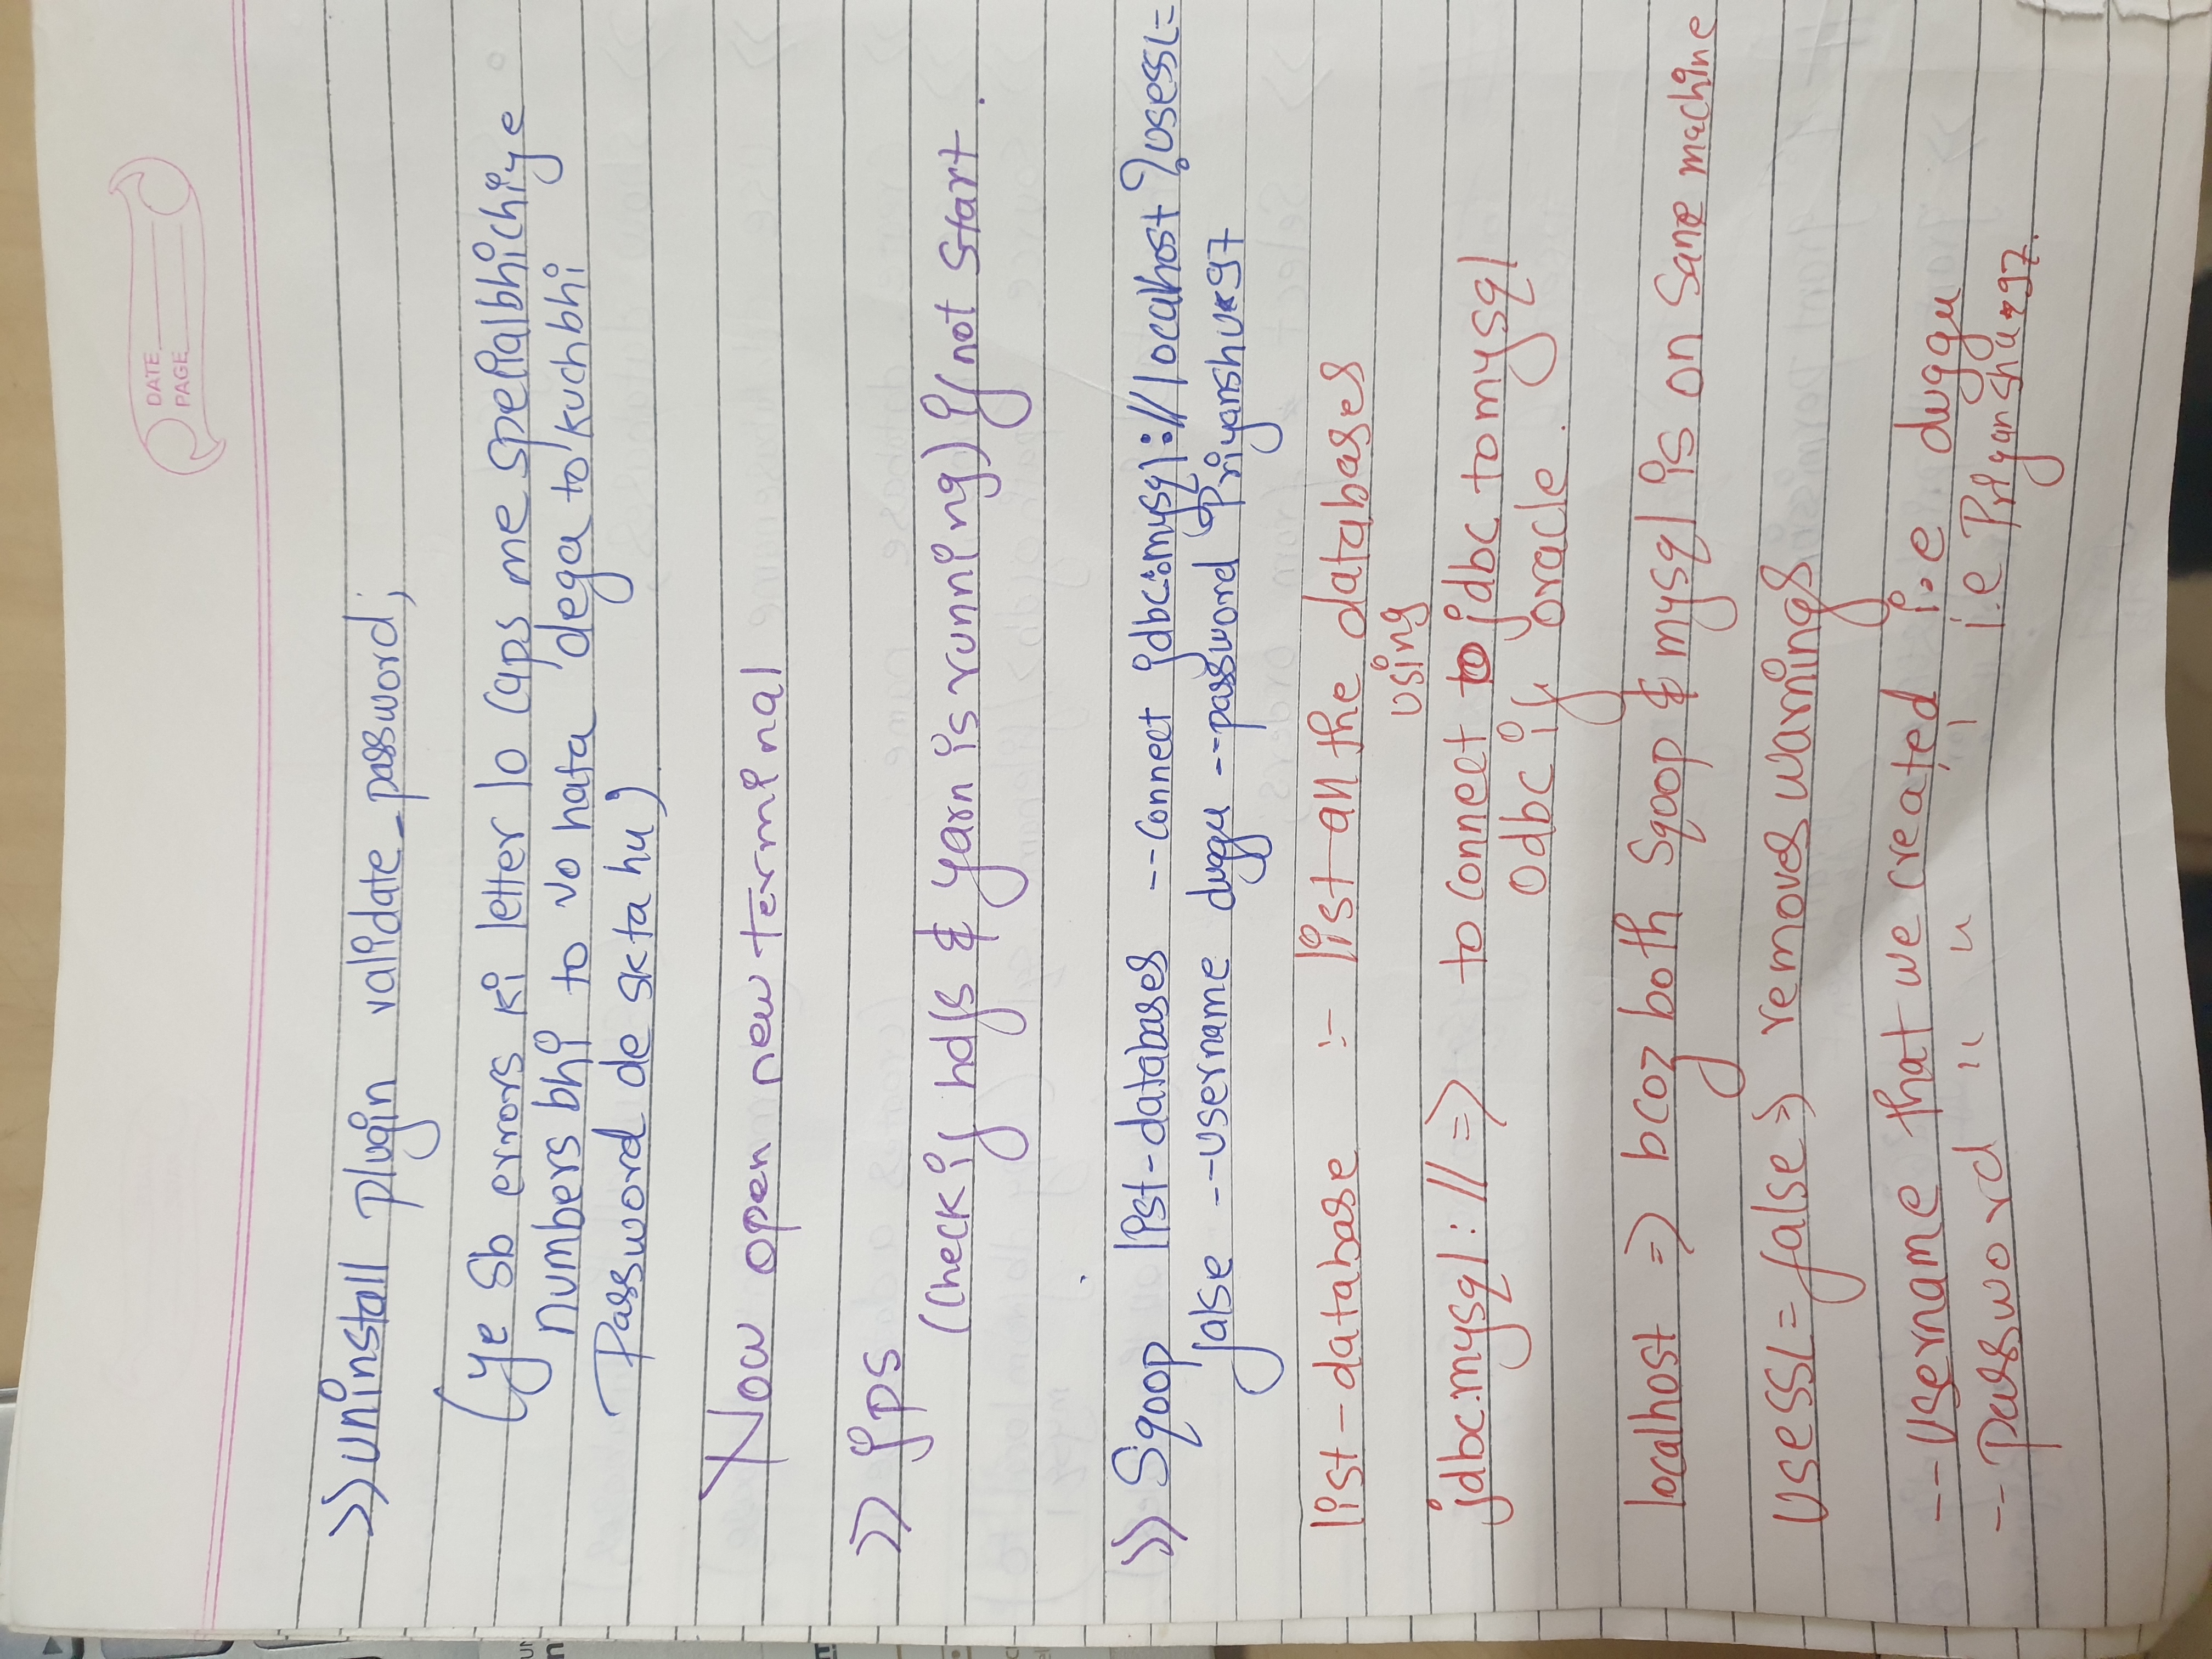 DATE
PAGE
>> uninstall plugin validate_password;
(ye sb errors ki letter lo caps me spelialbhichiye
numbers bhi to vo hata dega to kuchbhi
Password de skta hu)
Now open new terminal
>> jps
(Check if hdfs & yarn is running) if not start.
>> Sqoop list-databases --connect jdbc:mysql://localhost?usessl=
false --username duggu --password Priyanshu*97
list-database :- list all the databases
using
jdbc:mysql:// => to connect to jdbc to mysql
odbc if oracle.
localhost => bcoz both Sqoop & mysql is on Same machine
usessl=false => removes warnings
--username that we created i.e duggu
--password " " " i.e Priyanshu*97.